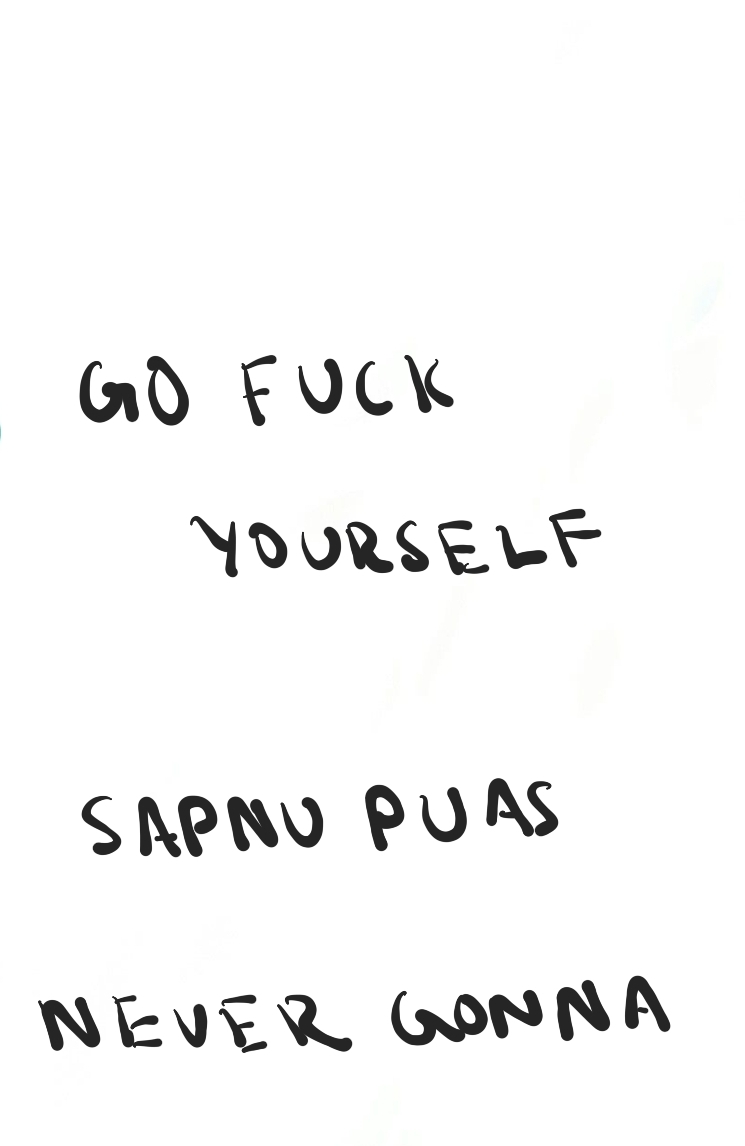 GO FUCK
YOURSELF
SAPNU PUAS
NEVER GONNA